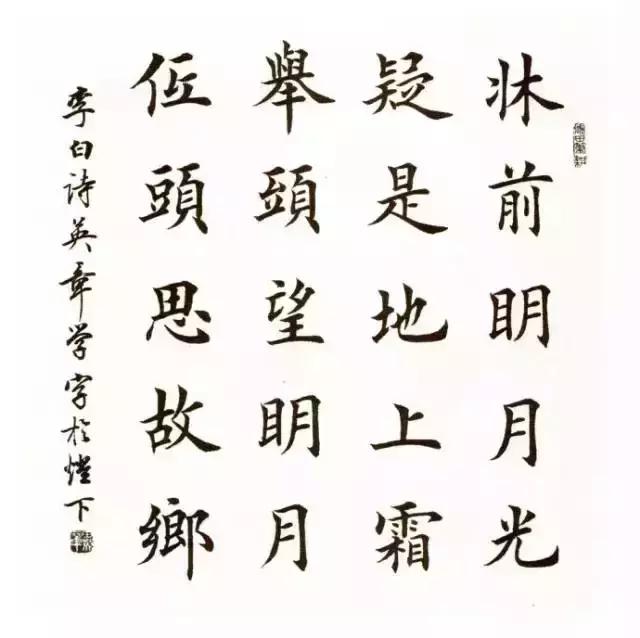 牀前明月光
疑是地上霜
舉頭望明月
低頭思故鄉
李白詩英章学字於燈下